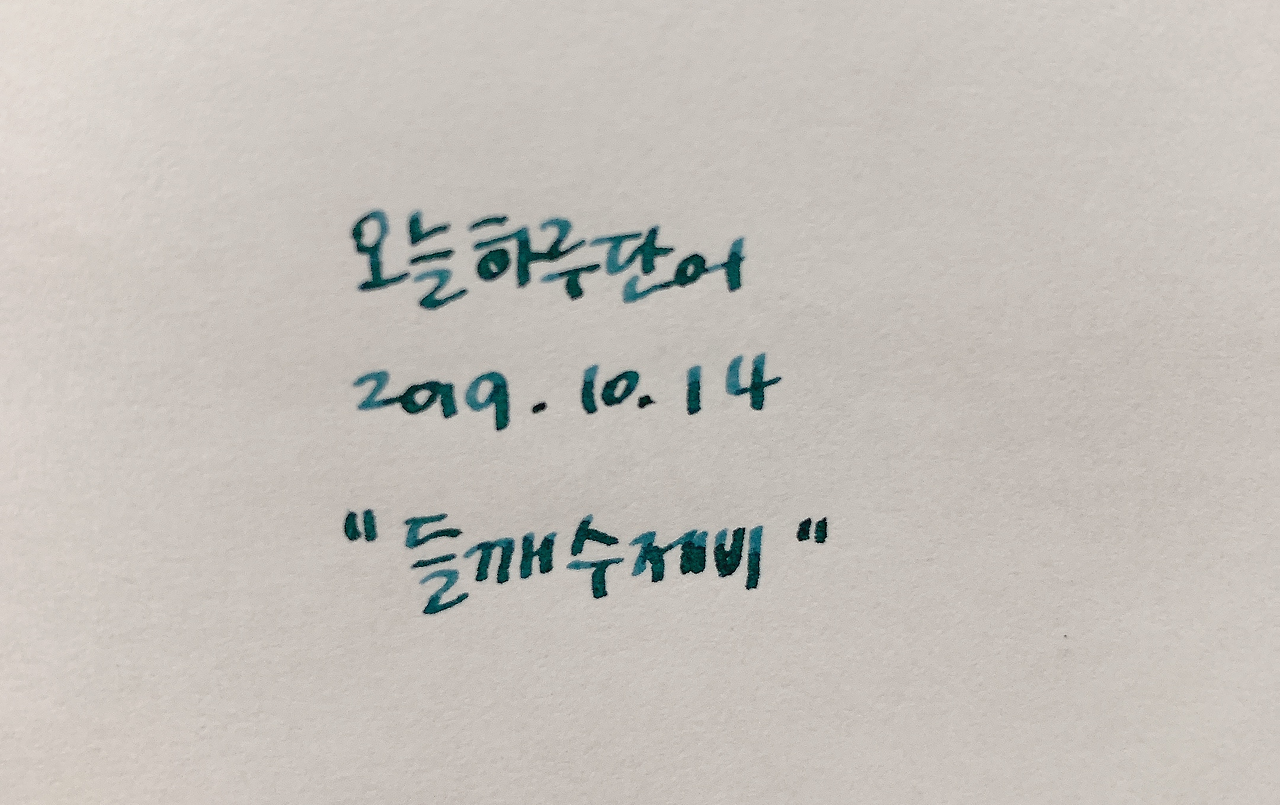 오늘하루단어
2019.10.14
"들깨수제비"